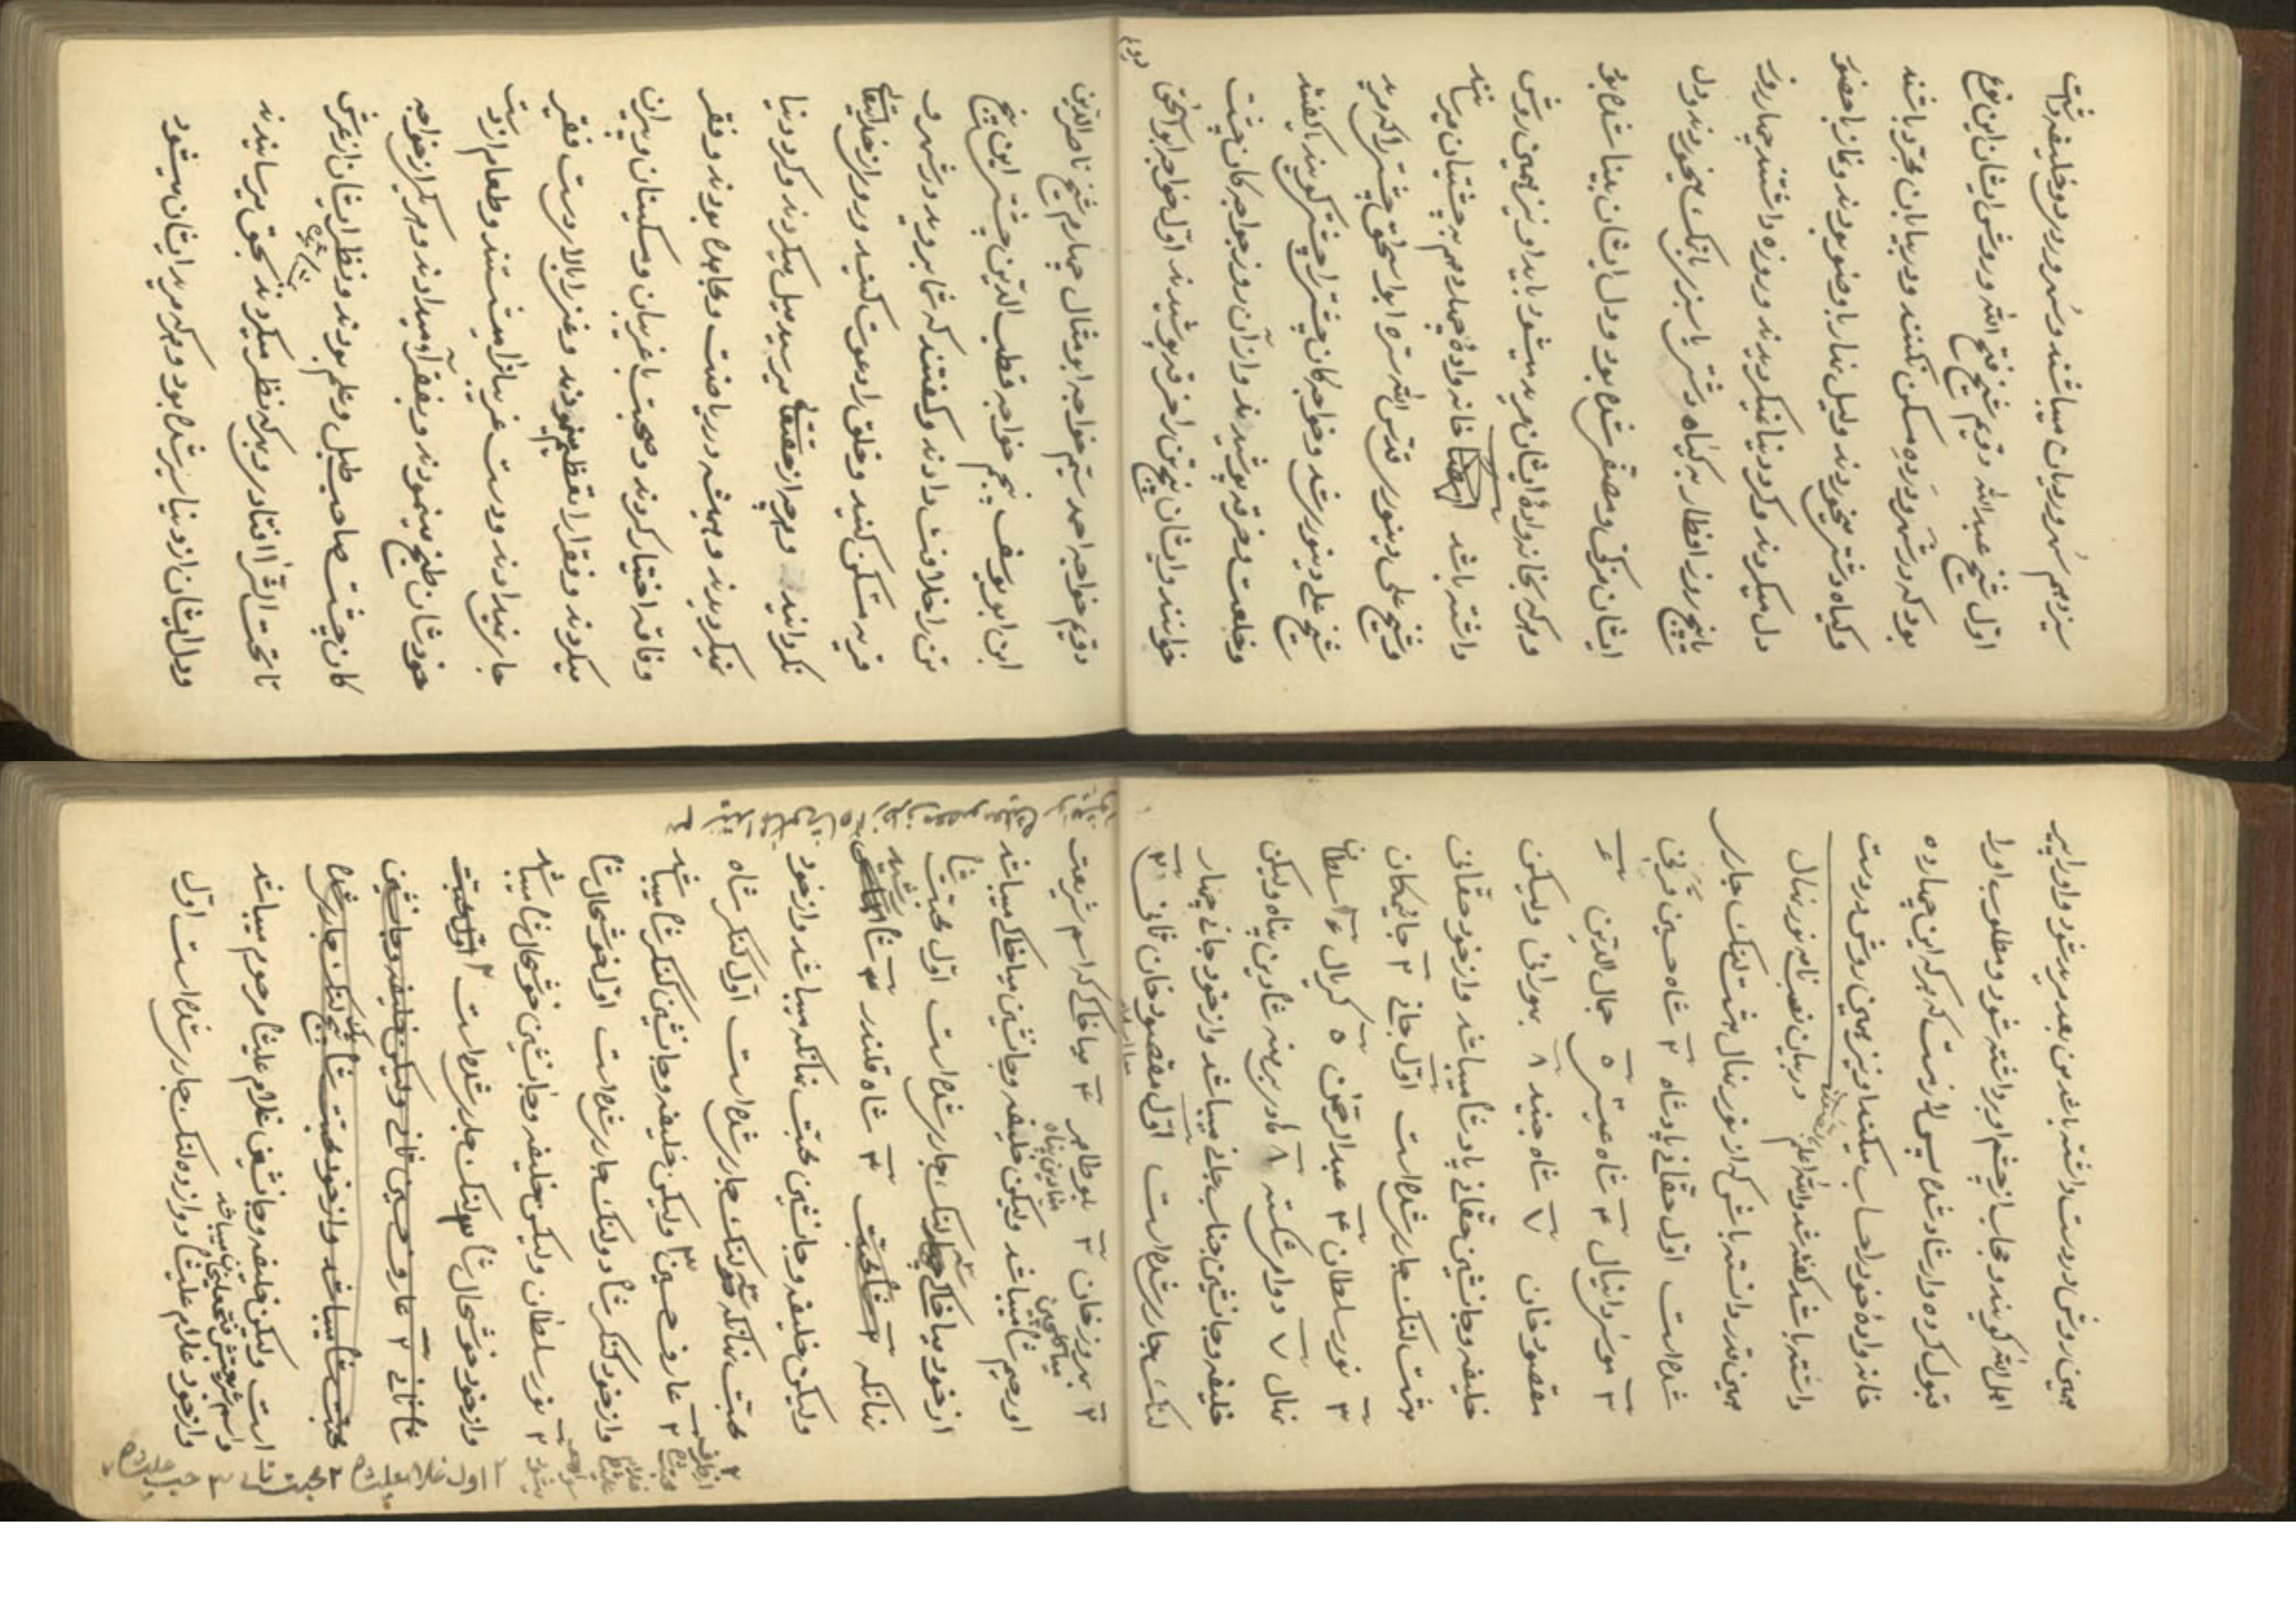 سیزدهم سُهروردیان میباشند و سُهرورد دو خلیفه داشت
اوّل شیخ عبدالله دویم شیخ فتح الله و روش ایشان این نوع
بود که در شهر و در ده مسکن نکنند و در بیابان مجرّد باشند
و گیاه دشتی میخوردند و لیل نهار با وضو بودند و نماز با حضور
دل میکردند و کرد دنیا نمیکردیدند و روزه داشتند چهار روز
پانچ روز افطار به گیاه دشتی یا سبز بانک میخوردند و دل
ایشان مزکی و مصقی شده بود و دل ایشان بینا شده بود
و هر که بخانواده ایشان مرید میشود باید او نیز همین روش
داشته باشد خانواده چهاردهم به چشتیان میرسانند
و شیخ علی دینوری قدس الله سرّه ابو اسحق چشتی را که مرید
شیخ علی دینوری شد و خواجه کان چشتی را چشتی گویند یا گفتند
و خلعت و خرقه پوشیدند و از آن روز خواجه کان چشت
خوانند و ایشان پنج تن را خرقه پوشیدند اوّل خواجه ابو اسحق
دویم خواجه احمد سیم خواجه ابو مثال چهارم شیخ ناصر الدّین
ابن ابو یوسف پنجم خواجه قطب الدّین چشتی این پنج
تن را خلافت دادند و گفتند که شما بروید در شهر و
قریه مسکن کنید و خلق را دعوت کنید و رو از خدایتعالی
نگردانید و هرچه از حقتعالی میرسید میل میکردند و کرد دنیا
نمیکردیدند و همیشه در ریاضت و مجاهده بودند و فقر
و فاقه اختیار کردند و صحبت با غریبان و مسکینان و پیران
میکردند و فقرا را تعظیم مینمودند و عزیز را بالا دست فقیر
جا نمیدادند و دست غریبانرا میشستند و طعام از دست
خودشان طبخ مینمودند و بفقرا میدادند و هر یکی از خواجه
کان چشت صاحب طبل و علم بودند و نظر ایشان از عرش
تا تحت الثرا افتادی و بر که نظر میکردند بحق میرسانیدند
و دل ایشان از دنیا سیر شده بود و هر که مرید ایشان میشود
همین روش در دست داشته باشد من بعد مرید شود و او را پیر
اهل الله گویند و حجاب از چشم او برداشته شود و مطلوب او را
قبول کرده و ارشاد شده پس لازمست که هر که این چهارده
خانواده خود را حساب میکند او نیز همین روش در دست
داشته باشد گفته شد والله اعلم در بیان نصب نامه نور نهال
همین قدر دانسته باش که از نور نهال هشت لنک جاری
شده است اوّل حقانی پادشاه ۲ شاه حسین قرنی
۳ موسی دانیال ۴ شاه عیشی ۵ جمال الدّین ۶
مقصود خان ۷ شاه جنید ۸ بهورانی ولیکن
خلیفه و جانشین حقانی پادشاه میباشد و از خود حقانی
هشت لنک جاری شده است اوّل جانی ۲ جانیکان
۳ نور سلطان ۴ عبد الرحمن ۵ کریال ۶ سلطان
نهال ۷ دوام شکسته ۸ مادر برهنه شاه دین پناه ولیکن
خلیفه و جانشین جناب جانی میباشد و از خود جانی چهار
لنک جاری شده است اوّل مقصود خان ثانی ۲
۲ بهروز خان ۳ بو طاهر ۴ میا خاکی که اسم شریعت
او رحیم شاه میباشد ولیکن خلیفه و جانشین میا خاکی میباشد
از خود میا خاکی لنک جاری شده است اوّل محبت شاه
ننانکه ۳ شاه قلندر
ولیکن خلیفه و جانشین محبت ننانکه میباشد و از خود
محبت ننانکه لنک جاری شده است اوّل کنکر شاه
۲ عارف حسین ولیکن خلیفه و جانشین کنکر شاه میباشد
و از خود کنکر شاه دو لنک جاری شده است اوّل خوشحال شاه
۲ نور سلطان ولیکن خلیفه و جانشین خوشحال شاه میباشد
و از خود خوشحال شاه لنک جاری شده است
شاه ثانی ۲ عارف حسین ثانی ولیکن خلیفه و جانشین
محبت شاه میباشد و از خود محبت شاه لنک جاری شده
است ولیکن خلیفه و جانشین غلام علیشاه مرحوم میباشد
و اسم شریعتش فتحعلیخان میباشد
و از خود غلام علیشاه دوازده لنک جاری شده است اوّل
۲ اول غلام علیشاه ۲ محبت شاه